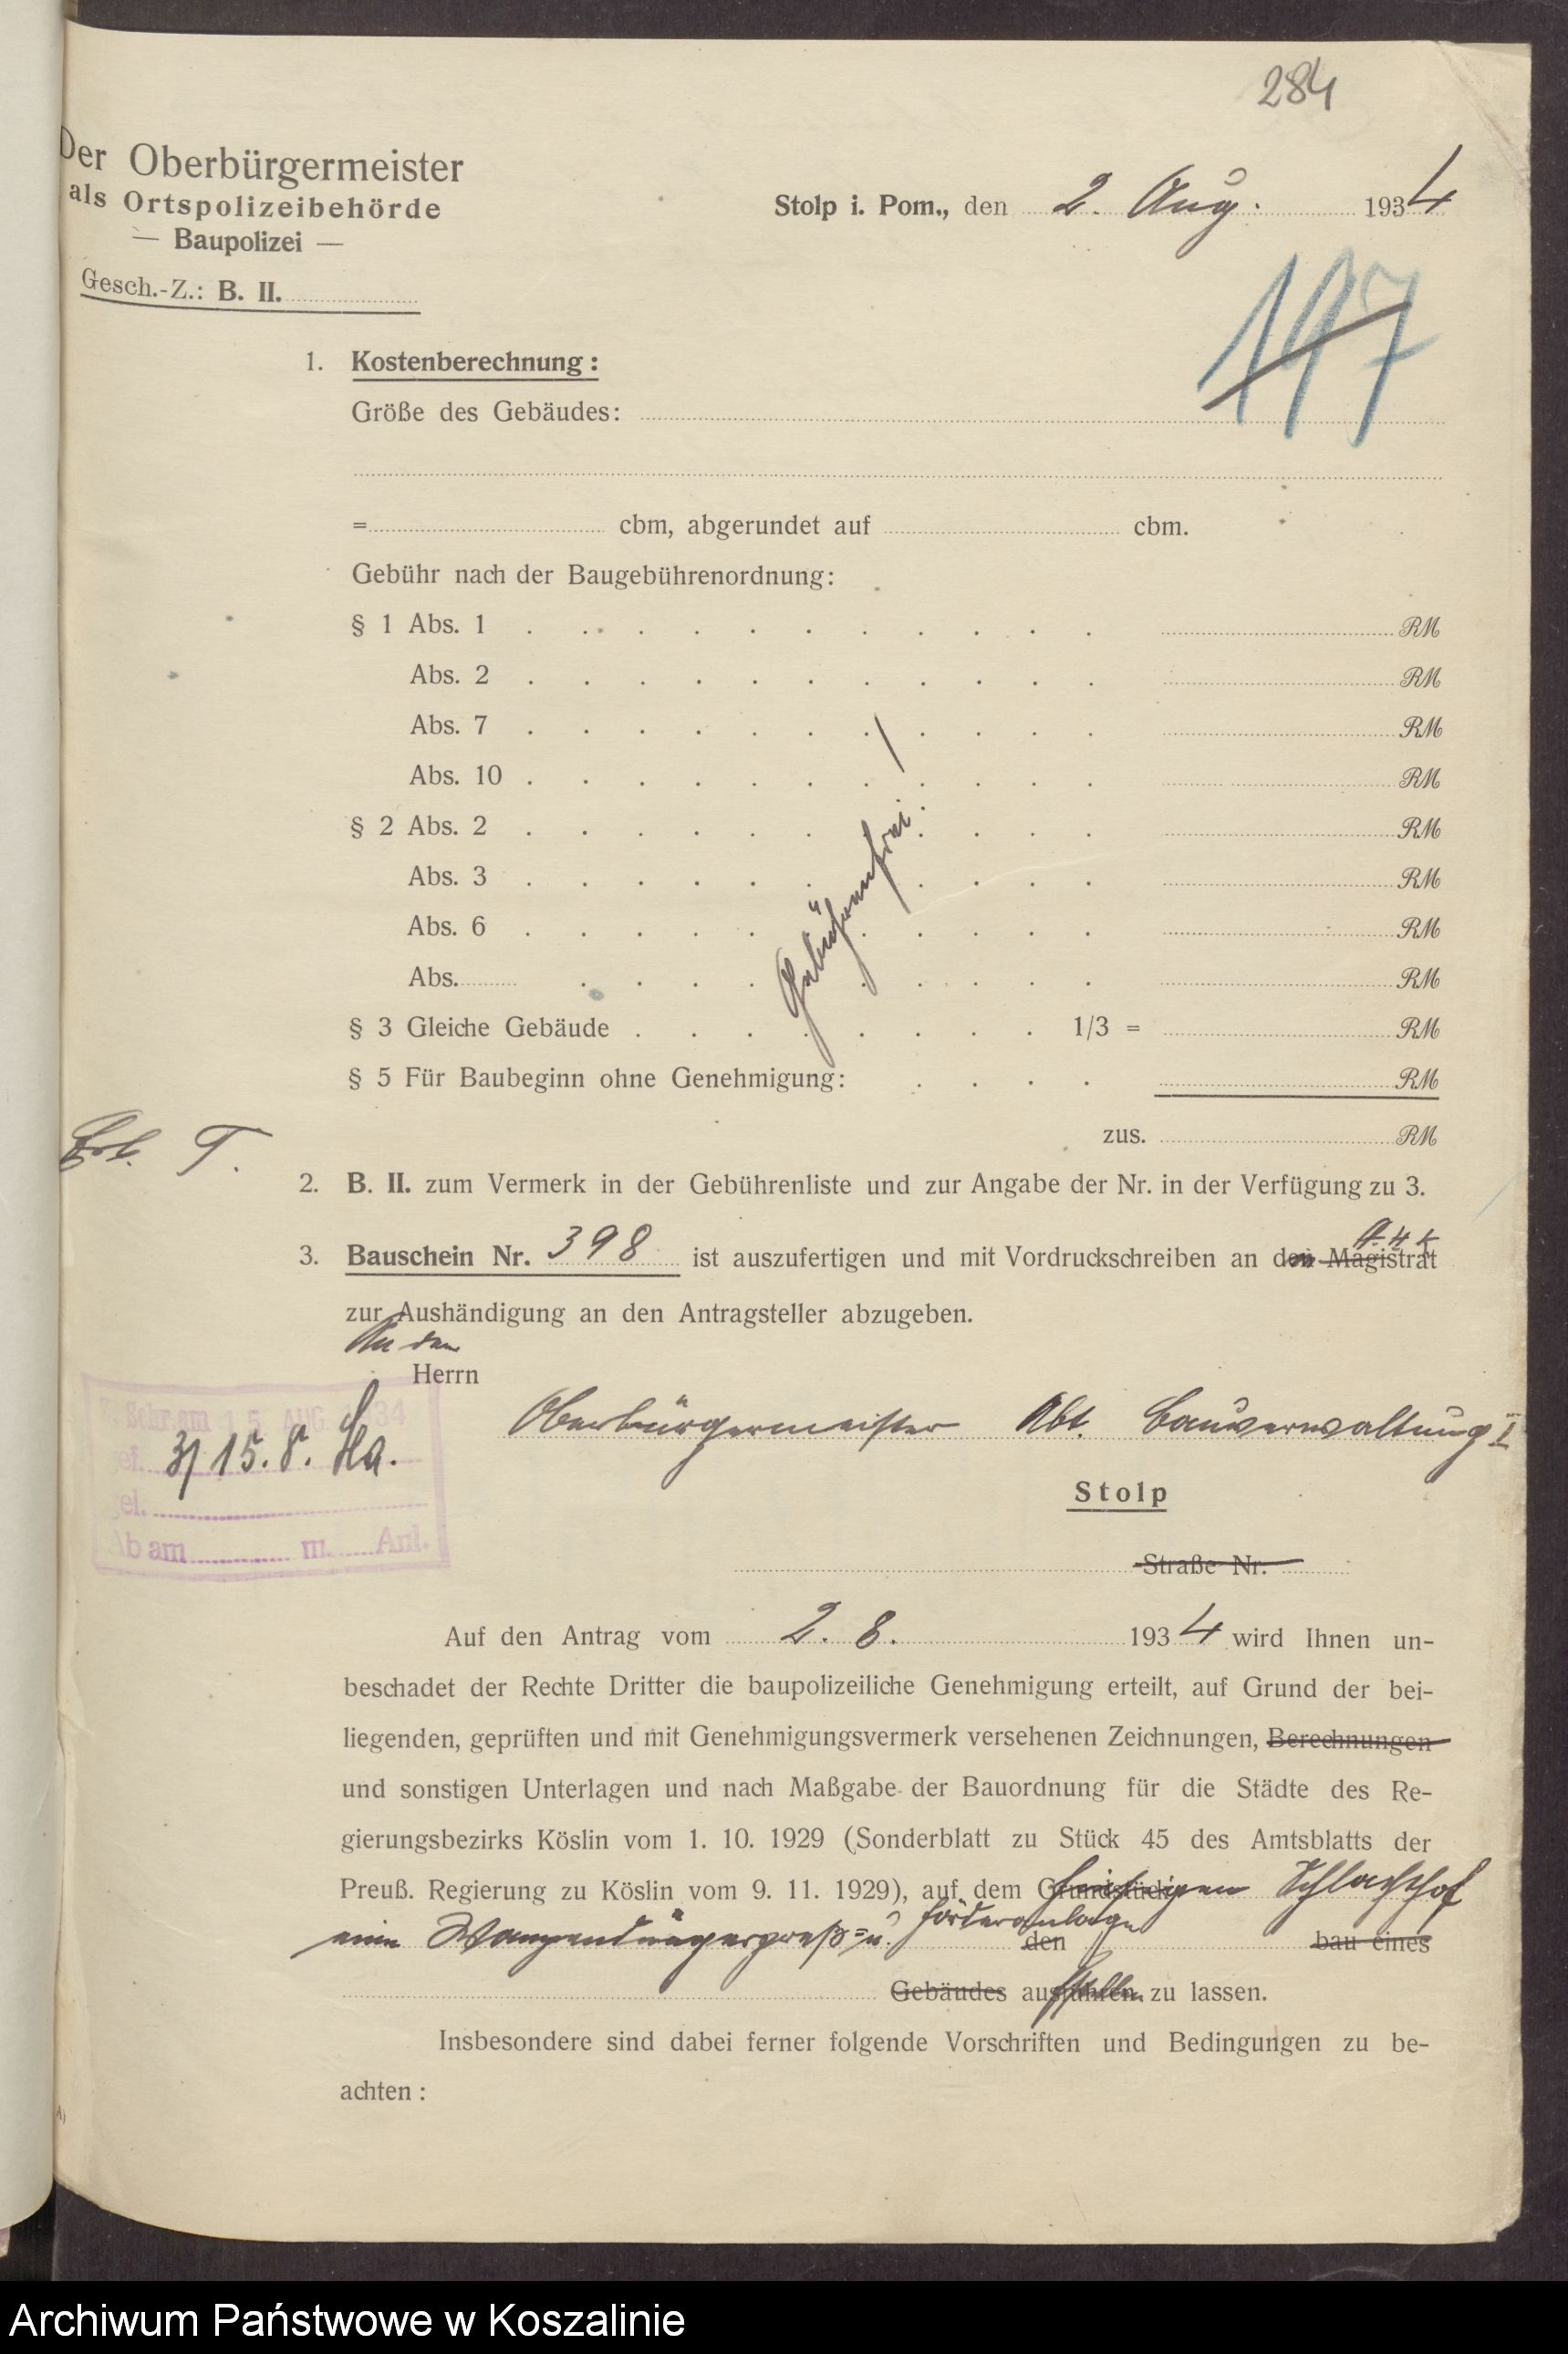 284
Der Oberbürgermeister
als Ortspolizeibehörde
— Baupolizei —
Gesch.-Z.: B. II.
Stolp i. Pom., den 2. Aug. 1934
1. Kostenberechnung:
Größe des Gebäudes:
= cbm, abgerundet auf cbm.
Gebühr nach der Baugebührenordnung:
§ 1 Abs. 1 RM
Abs. 2 RM
Abs. 7 RM
Abs. 10 RM
§ 2 Abs. 2 RM
Abs. 3 RM
Abs. 6 RM
Abs. RM
Gebührenfrei.
§ 3 Gleiche Gebäude 1/3 = RM
§ 5 Für Baubeginn ohne Genehmigung: RM
zus. RM
2. B. II. zum Vermerk in der Gebührenliste und zur Angabe der Nr. in der Verfügung zu 3.
3. Bauschein Nr. 398 ist auszufertigen und mit Vordruckschreiben an den Magistrat
zur Aushändigung an den Antragsteller abzugeben.
An den
Herrn
Oberbürgermeister Abt. Bauverwaltung I
15 AUG. 34
3/ 15. 8.
Ab am m. Anl.
Stolp
Straße Nr.
Auf den Antrag vom 2. 8. 1934 wird Ihnen un-
beschadet der Rechte Dritter die baupolizeiliche Genehmigung erteilt, auf Grund der bei-
liegenden, geprüften und mit Genehmigungsvermerk versehenen Zeichnungen, Berechnungen
und sonstigen Unterlagen und nach Maßgabe der Bauordnung für die Städte des Re-
gierungsbezirks Köslin vom 1. 10. 1929 (Sonderblatt zu Stück 45 des Amtsblatts der
Preuß. Regierung zu Köslin vom 9. 11. 1929), auf dem Grundstück hiesigen Schlachthof
eine Wampendüngerpreß- u. Förderanlage den bau eines
Gebäudes ausführen aufstellen zu lassen.
Insbesondere sind dabei ferner folgende Vorschriften und Bedingungen zu be-
achten:
Archiwum Państwowe w Koszalinie